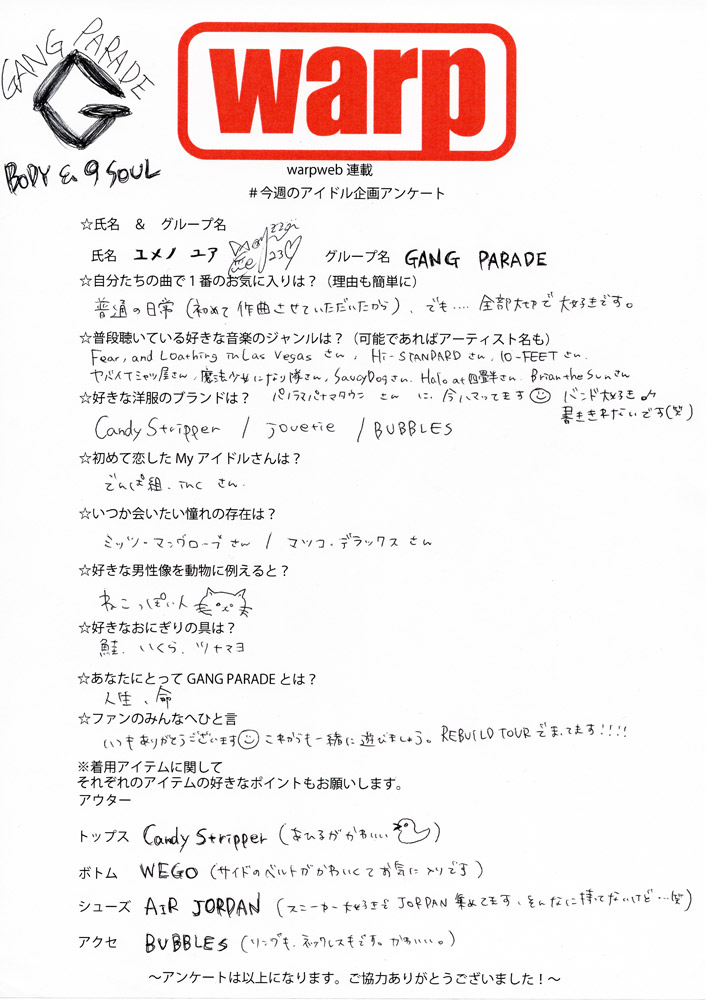 GANG PARADE
G
BODY & 9 SOUL
warp
warpweb 連載
#今週のアイドル企画アンケート
☆氏名 & グループ名
氏名 ユメノ ユア グループ名 GANG PARADE
☆自分たちの曲で1番のお気に入りは?(理由も簡単に)
普通の日常(初めて作曲させていただいたから)、でも…. 全部大切で大好きです。
☆普段聴いている好きな音楽のジャンルは?(可能であればアーティスト名も)
Fear, and Loathing in Las Vegas さん, Hi-STANDARD さん, 10-FEET さん.
ヤバイTシャツ屋さん, 魔法少女になり隊さん, Saucy Dog さん. Halo at 四畳半さん. Brian the Sun さん
パノラマパナマタウン さん に、今ハマってます バンド大好き♪
書ききれないです(笑)
☆好きな洋服のブランドは?
Candy Stripper / jouetie / BUBBLES
☆初めて恋した My アイドルさんは?
でんぱ組.inc さん.
☆いつか会いたい憧れの存在は?
ミッツ・マングローブ さん / マツコ・デラックス さん
☆好きな男性像を動物に例えると?
ねこっぽい人
☆好きなおにぎりの具は?
鮭. いくら. ツナマヨ
☆あなたにとって GANG PARADE とは?
人生、命
☆ファンのみんなへひと言
いつもありがとうございます これからも一緒に遊びましょう。REBUILD TOUR でまってます!!!!
※着用アイテムに関して
それぞれのアイテムの好きなポイントもお願いします。
アウター
トップス Candy Stripper (あひるがかわいい )
ボトム WEGO (サイドのベルトがかわいくてお気に入りです)
シューズ AIR JORDAN (スニーカー大好きで JORDAN 集めてます、そんなに持ってないけど…笑)
アクセ BUBBLES (リングも、ネックレスもです。かわいい。)
~アンケートは以上になります。ご協力ありがとうございました!~